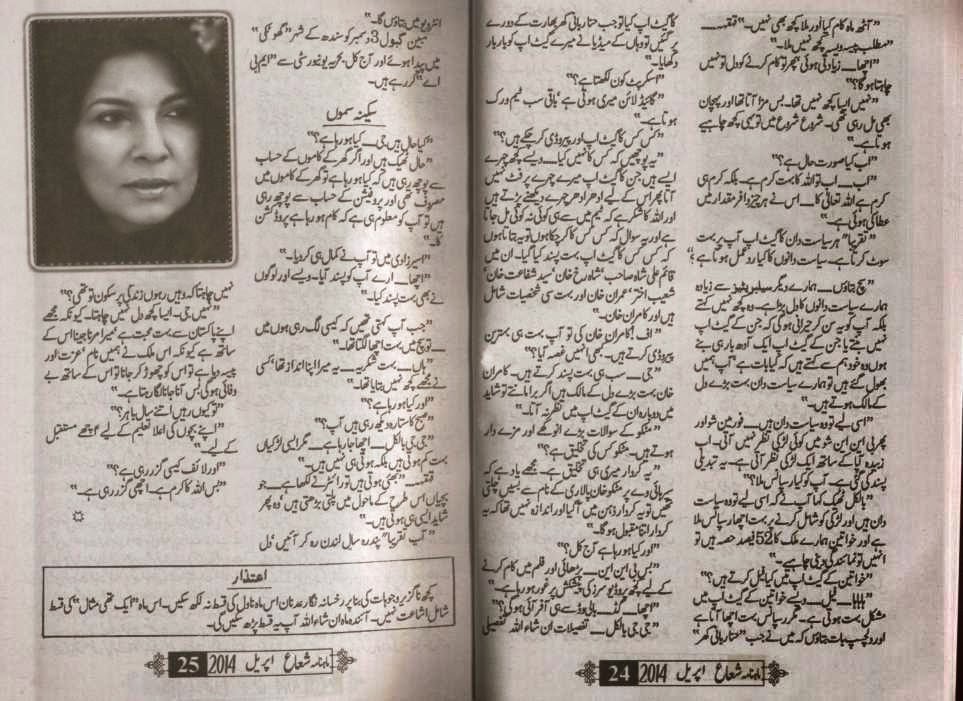 ”آٹھ ماہ کام کیا اور ملا کچھ بھی نہیں۔“ قہقہہ۔۔۔۔
”مطلب پیسہ ویسہ کچھ نہیں ملا۔“
”اچھا۔۔۔۔ زیادتی ہوئی، پھر تو کام کرنے کو دل تو نہیں
چاہتا ہوگا؟“
”نہیں ایسا کچھ نہیں تھا۔ بس مزا آتا تھا اور پہچان
بھی مل رہی تھی۔ شروع شروع میں تو یہی کچھ چاہیے
ہوتا ہے۔“
”اب کیا صورت حال ہے؟“
”اب۔۔۔۔ اب تو اللہ کا بہت کرم ہے۔ بلکہ کرم ہی
کرم ہے اللہ تعالیٰ کا۔۔۔۔ اس نے ہر چیز وافر مقدار میں
عطا کی ہوئی ہے۔“
”تقریبا“ ہر سیاست دان کا گیٹ اپ آپ پر بہت
سوٹ کرتا ہے۔ سیاست دانوں کا کیا ردعمل ہوتا ہے؟“
”سچ بتاؤں۔۔۔۔ ہمارے دیگر سیلبریٹیز سے زیادہ
ہمارے سیاست دانوں کا دل بڑا ہے۔ وہ کچھ نہیں کہتے
بلکہ آپ کو یہ سن کر حیرانی ہوگی کہ جن کے گیٹ اپ
میں نے کیے یا جن کے گیٹ اپ ایک آدھ بار ہی بنے
ہوں وہ خود ہم سے کہتے ہیں کہ کیا بات ہے ”آپ ہمیں
بھول گئے ہیں تو ہمارے سیاست دان بہت بڑے دل
کے مالک ہوتے ہیں۔“
”اسی لیے تو وہ سیاست دان ہیں۔۔۔۔ فورمین شو اور
پھر بی این این شو میں کوئی لڑکی نظر نہیں آئی۔ اب
زبیدہ آپا کے ساتھ ایک لڑکی نظر آئی ہے۔ یہ تبدیلی
پسند کی گئی ہے۔ آپ کو کیا رسپانس ملا؟“
”بالکل ٹھیک کہا آپ نے کہ اسی لیے تو وہ سیاست
دان ہیں اور لڑکی کو شامل کرنے پر بہت اچھا رسپانس ملا
ہے اور خواتین ہمارے ملک کا 52 فیصد حصہ ہیں تو
انہیں تو نمائندگی دینی چاہیے۔“
”خواتین کے گیٹ اپ میں کیا فیل کرتے ہیں؟“
”ہاہاہا۔۔۔۔ فیل۔۔۔۔ ویسے خواتین کے گیٹ اپ میں
مشکل بہت ہوتی ہے۔ مگر رسپانس بہت اچھا آتا ہے
اور دلچسپ بات بتاؤں کہ میں نے جب ”حنا ربانی کھر“
کا گیٹ اپ کیا تو جب حنا ربانی کھر بھارت کے دورے
پر گئیں تو وہاں کے میڈیا نے میرے گیٹ اپ کو بار بار
دکھایا۔“
”اسکرپٹ کون لکھتا ہے؟“
”گائیڈ لائن میری ہوتی ہے، باقی سب ٹیم ورک
ہوتا ہے۔“
”کس کس کا گیٹ اپ اور پیروڈی کر چکے ہیں؟“
”یہ پوچھیں کہ کس کا نہیں کیا۔ ویسے کچھ چہرے
ایسے ہیں جن کا گیٹ اپ میرے چہرے پر فٹ نہیں
آتا پھر اس کے لیے ادھر ادھر چہرے دیکھنے پڑتے ہیں
اور اللہ کا شکر ہے کہ ٹیم میں سے ہی کوئی نہ کوئی مل جاتا
ہے اور یہ سوال کہ کس کس کا کر چکا ہوں تو یہ بتاتا ہوں
کہ کس کس کا گیٹ اپ نہیں کیا گیا۔ ان میں
قائم علی شاہ صاحب، شاہ رخ خان، سید شفاعت خان،
شعیب اختر، عمران خان اور بہت سی شخصیات شامل
ہیں اور کامران خان۔“
”اف! کامران خان کی تو آپ بہت ہی بہترین
پیروڈی کرتے ہیں۔ کبھی انہیں غصہ آیا؟“
”جی۔۔۔۔ سب ہی بہت پسند کرتے ہیں۔ کامران
خان بہت بڑے دل کے مالک ہیں اگر برا مانتے تو شاید
میں دوبارہ ان کے گیٹ اپ میں نظر نہ آتا۔“
”مٹکو کے سوالات بڑے انوکھے اور مزے دار
ہوتے ہیں۔ مٹکو کس کی تخلیق ہے؟“
”یہ کردار میرا ہی تخلیق ہے۔ مجھے یاد ہے کہ
سپرہائی وے پر مٹکو خان بالاری کے نام سے بسیں چلتی
تھیں تو یہ کردار ذہن میں آگیا اور اندازہ نہیں تھا کہ یہ
کردار اتنا مقبول ہوگا۔“
”اور کیا ہو رہا ہے آج کل؟“
”بس بی این این۔۔۔۔ پڑھائی اور فلم میں کام کرنے
کے لیے کچھ پروڈیوسرز کی پیشکش پر غور ہو رہا ہے۔“
”اچھا۔۔۔۔ گڈ۔۔۔۔ بالی ووڈ سے ہی آفر آئی ہوگی؟“
”جی جی بالکل۔۔۔۔ تفصیلات ان شاء اللہ تفصیلی
ماہنامہ شعاع اپریل 2014 24
انٹرویو میں بتاؤں گا۔“
مبین گبول 3 دسمبر کو سندھ کے شہر ”گھوٹکی“
میں پیدا ہوئے اور آج کل بحریہ یونیورسٹی سے ”ایم بی
اے“ کر رہے ہیں۔
سکینہ سموں
”کیا حال ہیں جی۔۔۔۔ کیا ہو رہا ہے؟“
”حال ٹھیک ہیں اور اگر گھر کے کاموں کے حساب
سے پوچھ رہی ہیں کہ کیا ہو رہا ہے تو گھر کے کاموں میں
مصروف تھی اور پروفیشن کے حساب سے پوچھ رہی
ہیں تو آپ کو معلوم ہی ہے کہ کام ہو رہا ہے پروڈکشن
کا۔“
”اسیر زادی میں تو آپ نے کمال ہی کر دیا۔“
”اچھا۔۔۔۔ ارے آپ کو پسند آیا۔ ویسے اور لوگوں
نے بھی بہت پسند کیا۔“
”جب آپ کہتی تھیں کہ کیسی لگ رہی ہوں میں
تو سچ میں بہت اچھا لگتا تھا۔“
”ہاں۔۔۔۔ بہت شکریہ۔۔۔۔ یہ میرا اپنا انداز تھا، کسی
نے مجھے کچھ نہیں بتایا تھا۔“
”اور کیا ہو رہا ہے؟“
”صبح کا ستارہ دیکھ رہی ہیں آپ؟“
”جی جی بالکل۔۔۔۔ اچھا جا رہا ہے۔۔۔۔ مگر ایسی لڑکیاں
بہت کم ہوتی ہیں بلکہ ہوتی ہی نہیں ہیں۔“
قہقہہ۔۔۔۔ ”بھئی ہوتی ہیں تو رائٹر نے لکھا ہے۔۔۔۔ جو
بچیاں اس طرح کے ماحول میں پلتی بڑھتی ہیں وہ پھر
شاید ایسی ہی ہوتی ہیں۔“
”آپ تقریبا“ پندرہ سال لندن رہ کر آئیں، دل
نہیں چاہتا کہ وہیں رہوں زندگی پرسکون تو تھی؟“
”نہیں جی۔ ایسا کچھ دل نہیں چاہتا۔ کیونکہ مجھے
اپنے پاکستان سے بہت محبت ہے میرا مرنا جینا اس کے
ساتھ ہے کیونکہ اس ملک نے ہمیں نام، عزت اور
پیسہ دیا ہے تو اس کو چھوڑ کر جانا تو اس کے ساتھ بے
وفائی ہوگی بس آنا جانا لگا رہتا ہے۔“
”تو کیوں رہیں اتنے سال باہر؟“
”اپنے بچوں کی اعلا تعلیم کے لیے اچھے مستقبل
کے لیے۔“
”اور لائف کیسی گزر رہی ہے؟“
”بس اللہ کا کرم ہے۔ اچھی گزر رہی ہے۔“
اعتذار
کچھ ناگزیر وجوہات کی بنا پر رخسانہ نگار عدنان اس ماہ ناول کی قسط نہ لکھ سکیں۔ اس ماہ ”ایک تھی مثال“ کی قسط
شامل اشاعت نہیں۔ آئندہ ماہ ان شاء اللہ آپ یہ قسط پڑھ سکیں گی۔
ماہنامہ شعاع اپریل 2014 25